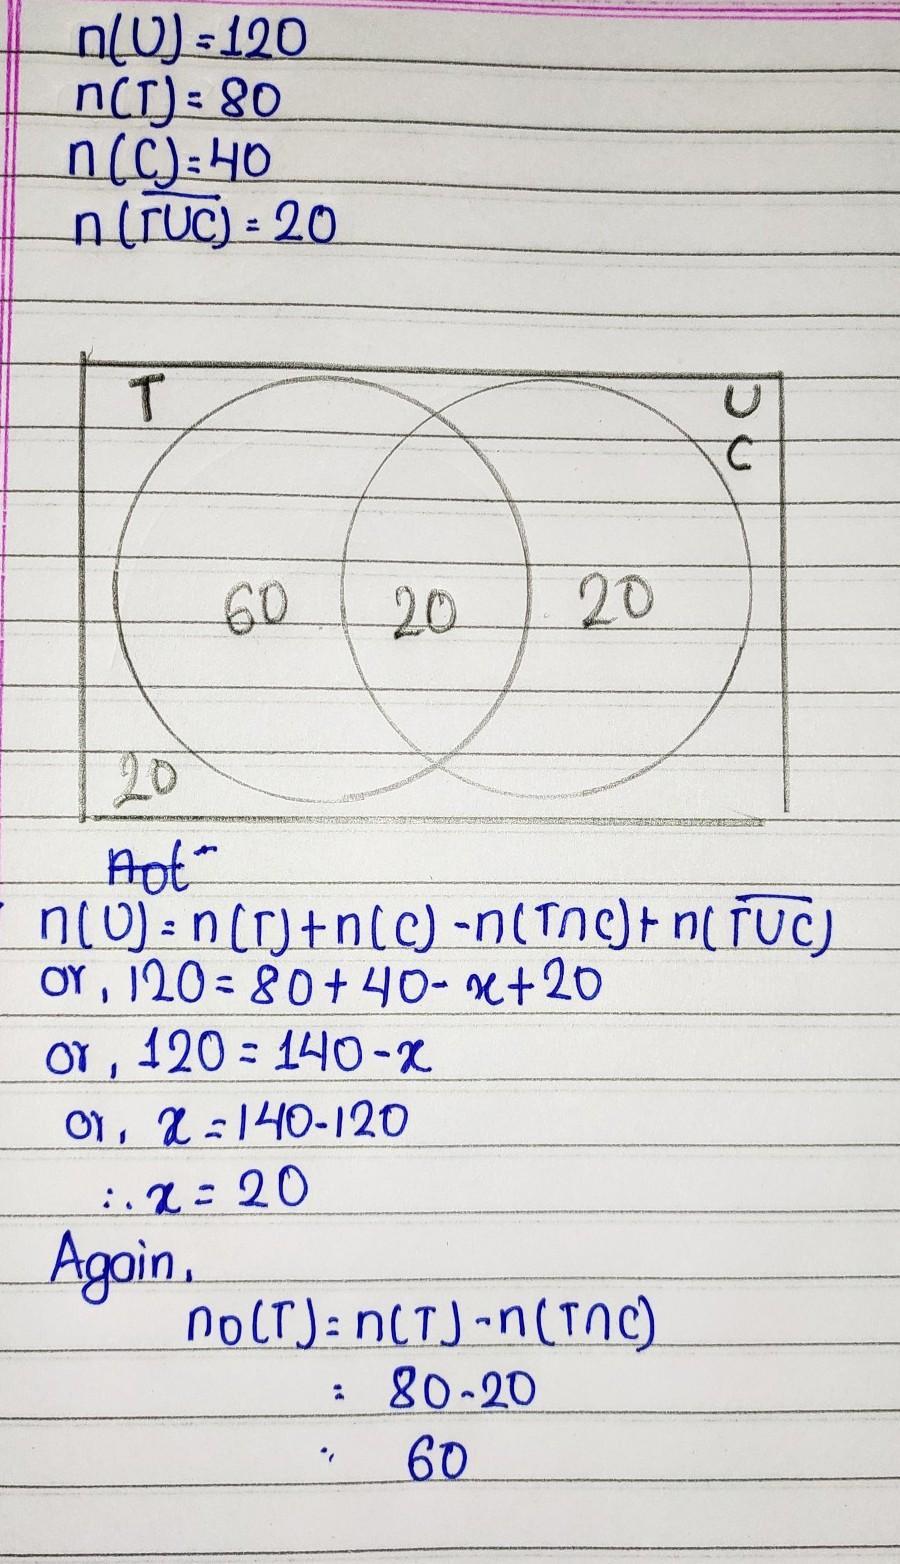 n(U) = 120
n(T) = 80
n(C) = 40
n(T̅U̅C̅) = 20
T
U
C
60 20 20
20
n(U) = n(T) + n(C) - n(T∩C) + n(T̅U̅C̅)
or, 120 = 80 + 40 - x + 20
or, 120 = 140 - x
or, x = 140 - 120
∴ x = 20
Again,
no(T) = n(T) - n(T∩C)
= 80 - 20
∴ 60